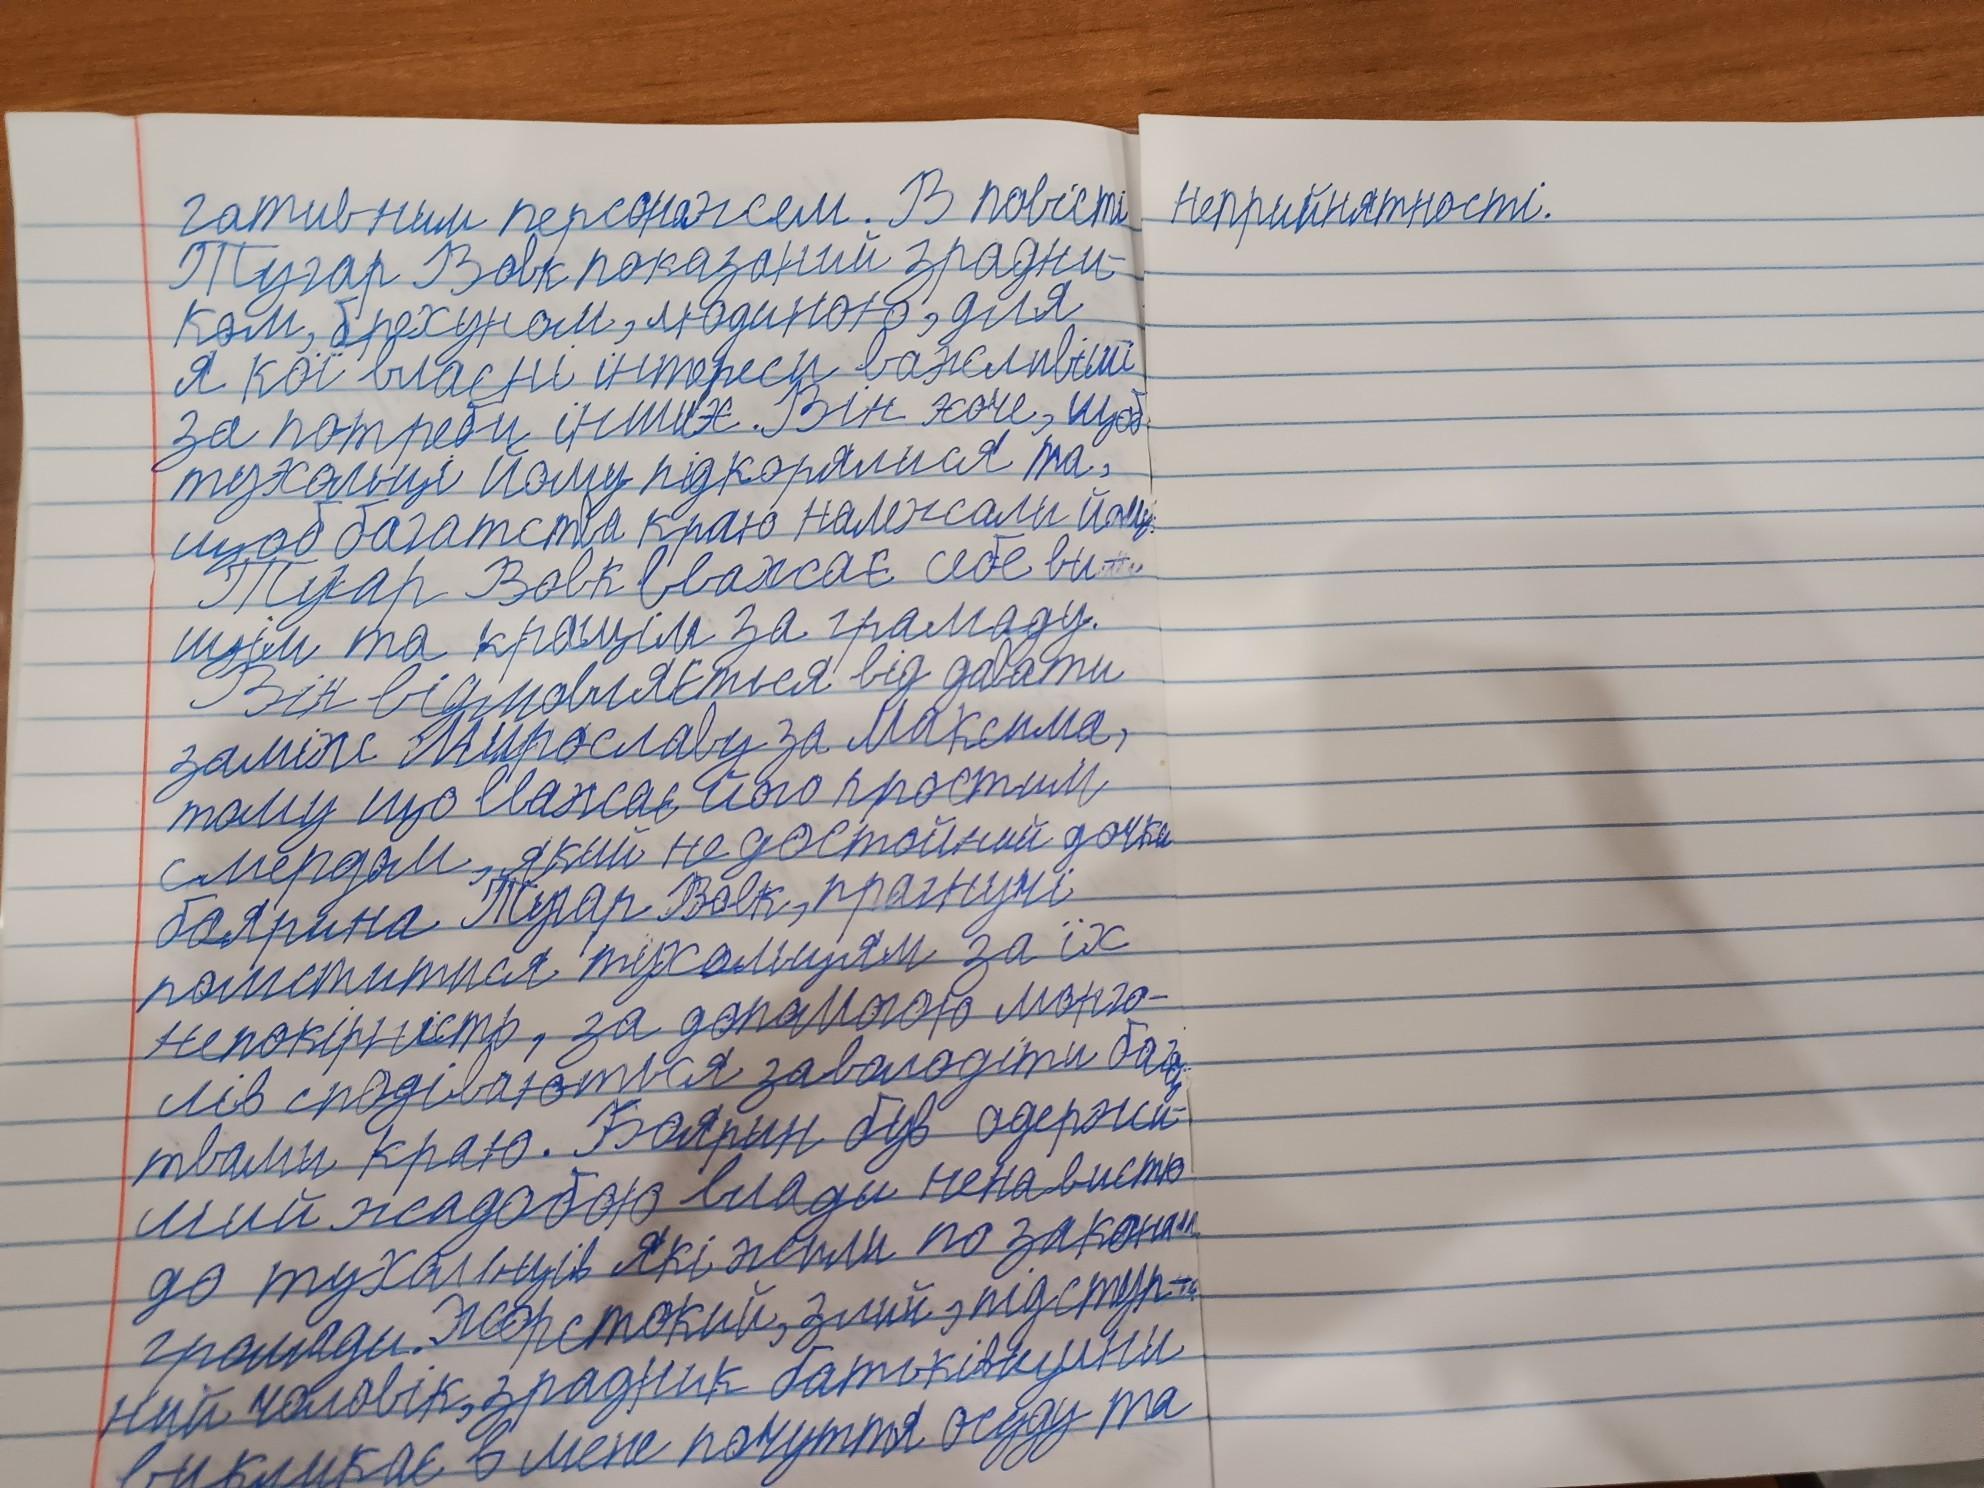 гативним персонажем. В повісті
Тугар Вовк показаний зрадни-
ком, брехуном, людиною, для
якої власні інтереси важливіші
за потреби інших. Він хоче, щоб
тухольці йому підкорялися та,
щоб багатства краю належали йому.
Тугар Вовк вважає себе ви-
щім та кращім за грамаду.
Він відмовляється від давати
заміж Мирославу за Максима,
тому що вважає його простим
смердом, який не достойний дочки
боярина Тугар Вовк, прагнучі
помститися тухольцям за їх
непокірність, за допомогою монго-
лів сподіваються заволодіти бага
твами краю. Боярин був одержи-
мий жадобою влади ненавистю
до тухольців які жили по законам
громади. Жорстокий, злий, підступ-
ний чоловік, зрадник батьківщини
викликає в мене почуття осуду та
неприйнятності.